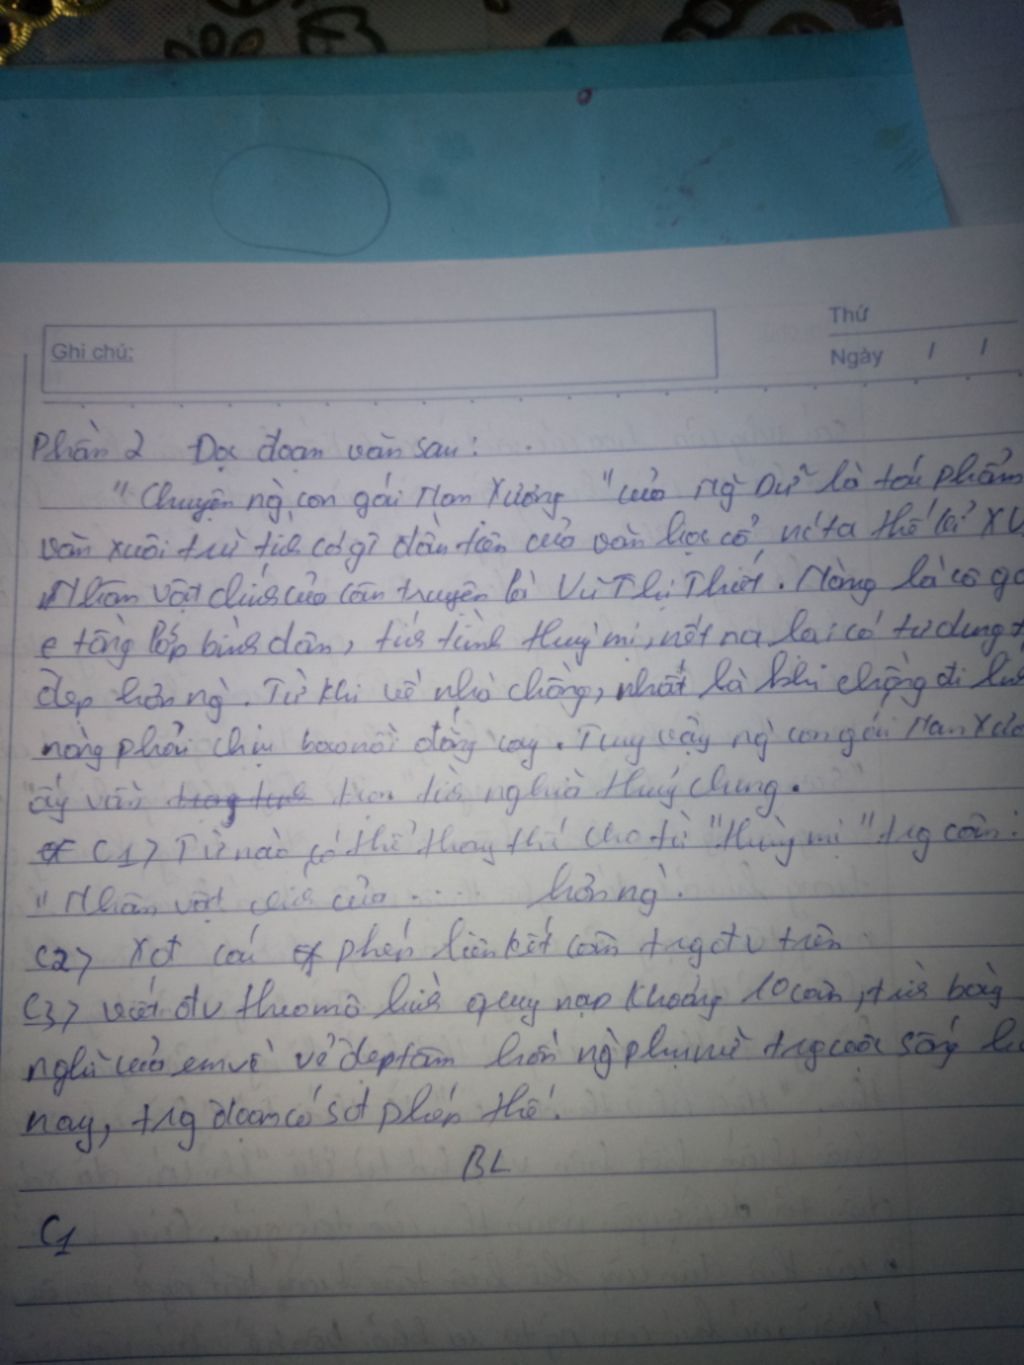 Thứ
Ghi chú:
Ngày / /
Phần 2 Đọc đoạn văn sau:
"Chuyện ng` con gái Nam Xương" của Ng~ Dữ là tác phẩm
văn xuôi tự sự có đầu tiên của văn học cổ nc ta thế kỉ XV
Nhân vật chính của câu truyện là Vũ Thị Thiết. Nàng là cô g
e tầng lớp bình dân, tính tình thuỳ mị, nết na lại có tư dung t
đẹp hơn ng`. Từ khi về nhà chồng, nhất là khi chồng đi
nàng phải chịu bao nỗi đắng cay. Tuy vậy ng` con gái Nam Xươ
ấy vẫn trọn tình nghĩa thuỷ chung.
C1> Từ nào có thể thay thế cho từ "thuỳ mị" trg câu:
"Nhân vật chính của .... hơn ng`.
C2> Xđ các phép liên kết câu trg đv trên
C3> viết đv theo mô hình quy nạp khoảng 10 câu, t bày
nghĩ của em về vẻ đẹp tâm hồn ng` phụ nữ trg cuộc sống h
nay, trg đoạn có sd phép thế.
BL
C1